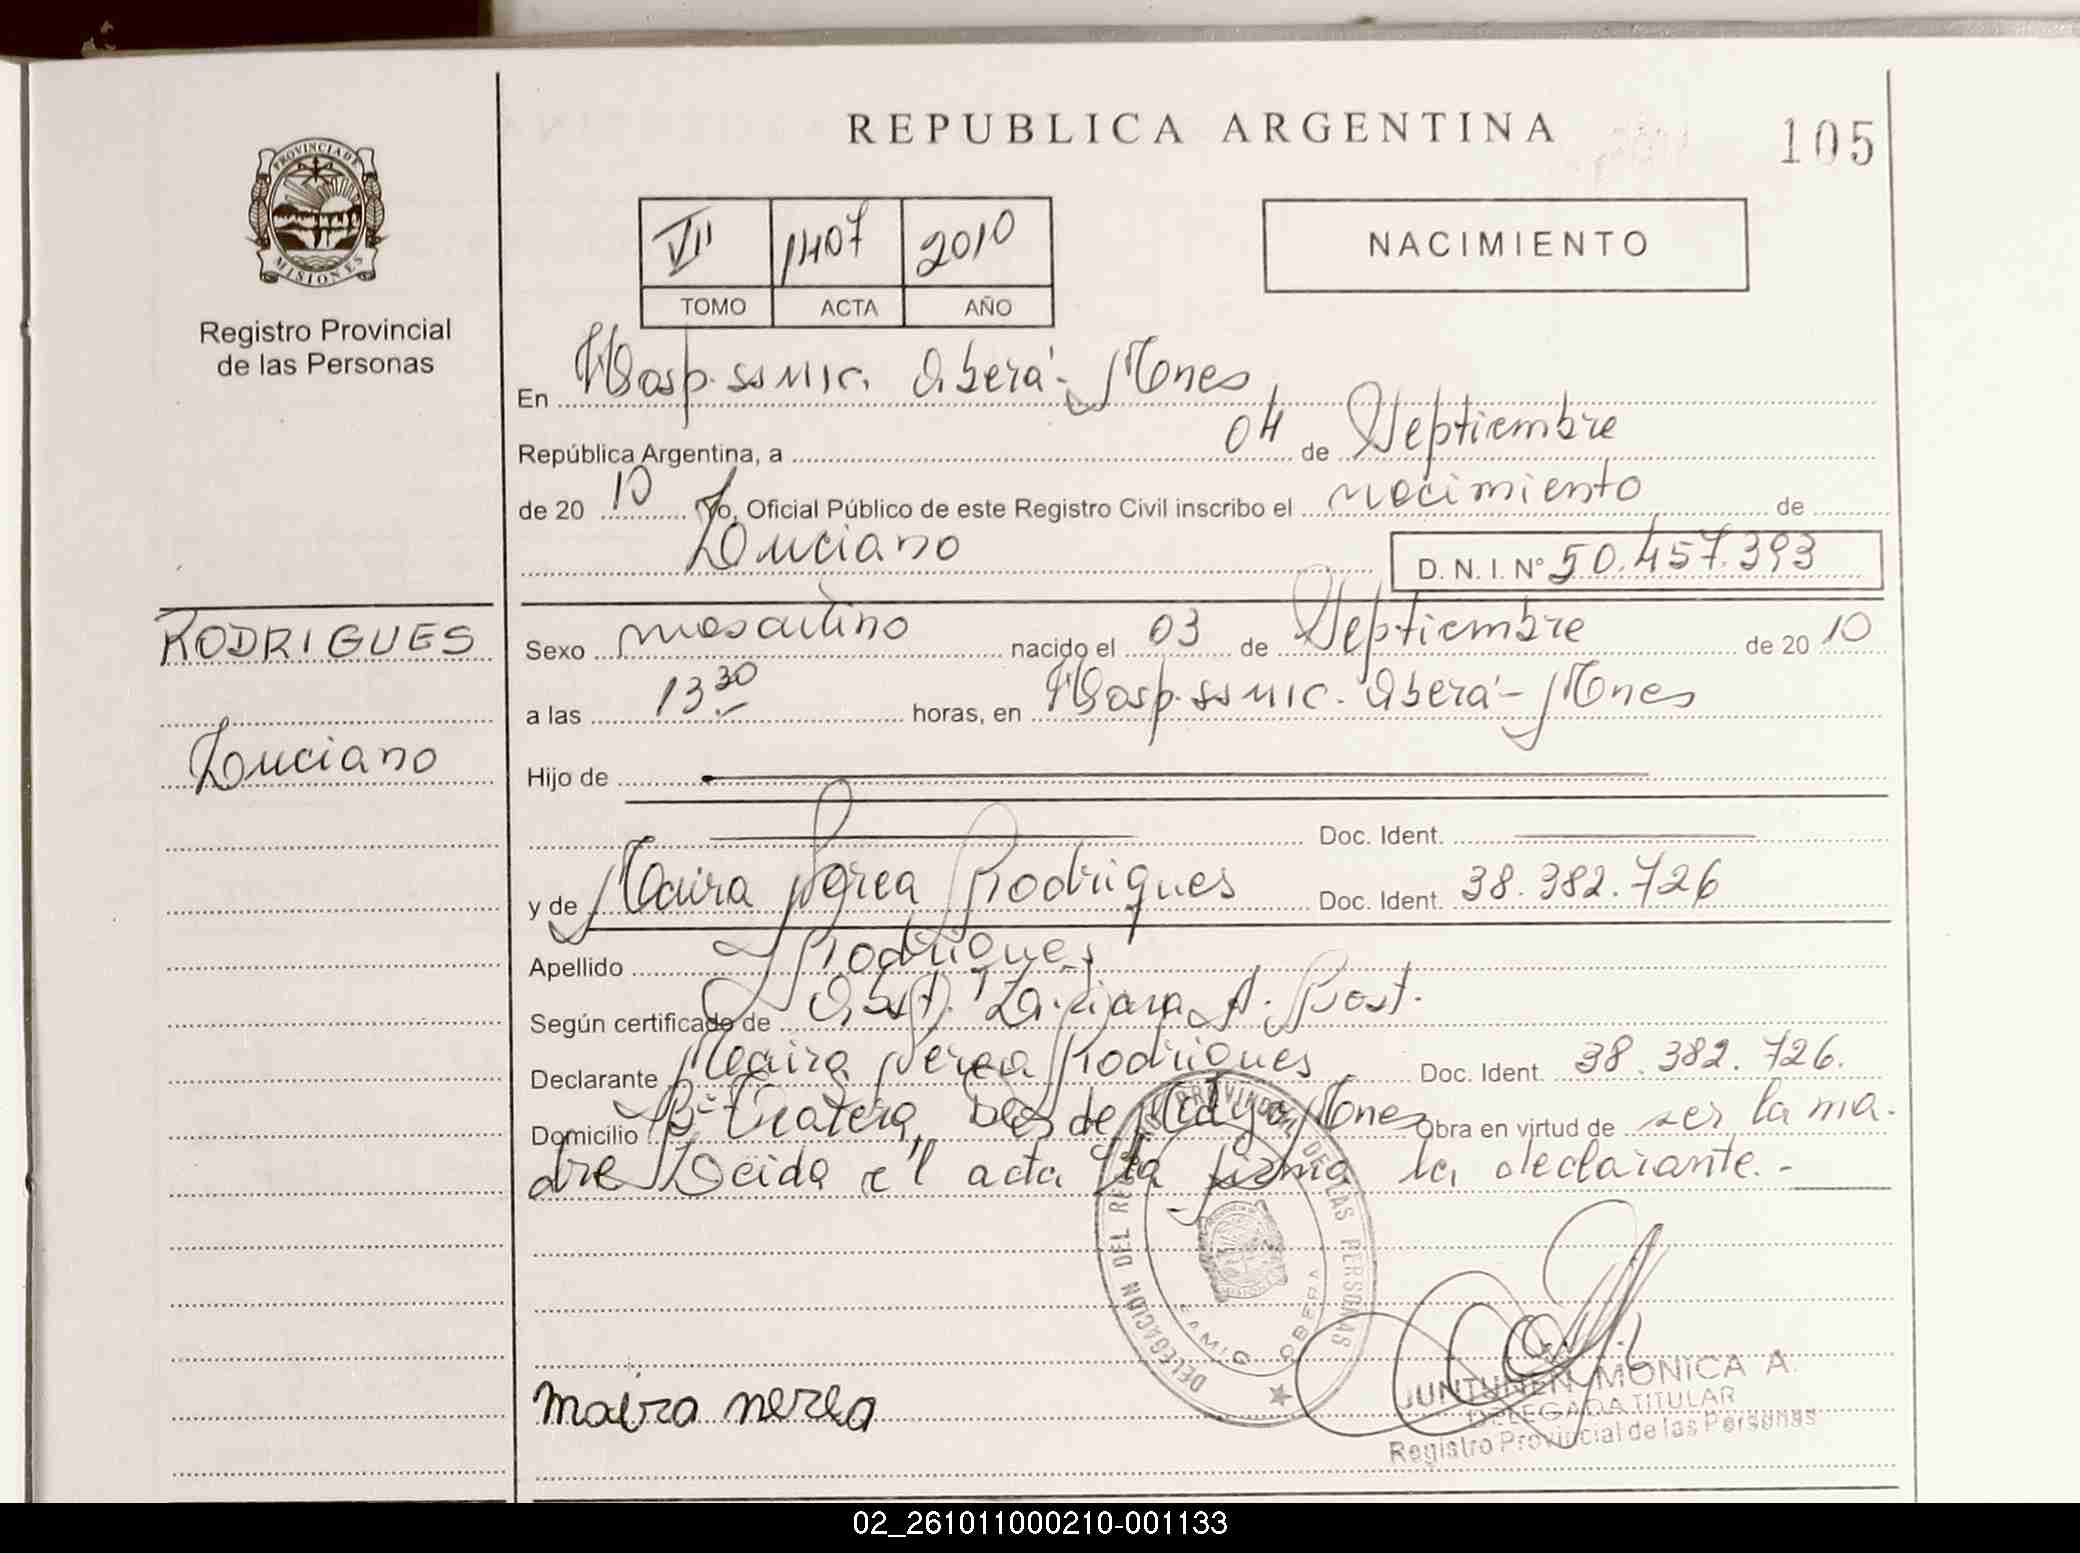 REPUBLICA ARGENTINA
105
PROVINCIA DE MISIONES
Registro Provincial
de las Personas
VII 1407 2010
TOMO ACTA AÑO
NACIMIENTO
En Hosp. SSMIC. Oberá - Mnes
República Argentina, a 04 de Septiembre
de 20 10 Yo, Oficial Público de este Registro Civil inscribo el nacimiento de
Luciano D. N. I. Nº 50.457.393
RODRIGUES
Luciano
Sexo masculino nacido el 03 de Septiembre de 20 10
a las 13 30 horas, en Hosp. SSMIC. Oberá - Mnes
Hijo de
Doc. Ident.
y de Maira Nerea Rodrigues Doc. Ident. 38.382.726
Apellido Rodrigues
Según certificado de Obst. A. Prost.
Declarante Maira Nerea Rodrigues Doc. Ident. 38.382.726.
Domicilio Bº de Mayo Mnes Obra en virtud de ser la ma-
dre Leida el acta la firma la declarante.-
DELEGACION DEL REGISTRO PROVINCIAL DE LAS PERSONAS
SAMIC OBERA
maira nerea
JUNTUNEN MONICA A.
DELEGADA TITULAR
Registro Provincial de las Personas
02_261011000210-001133